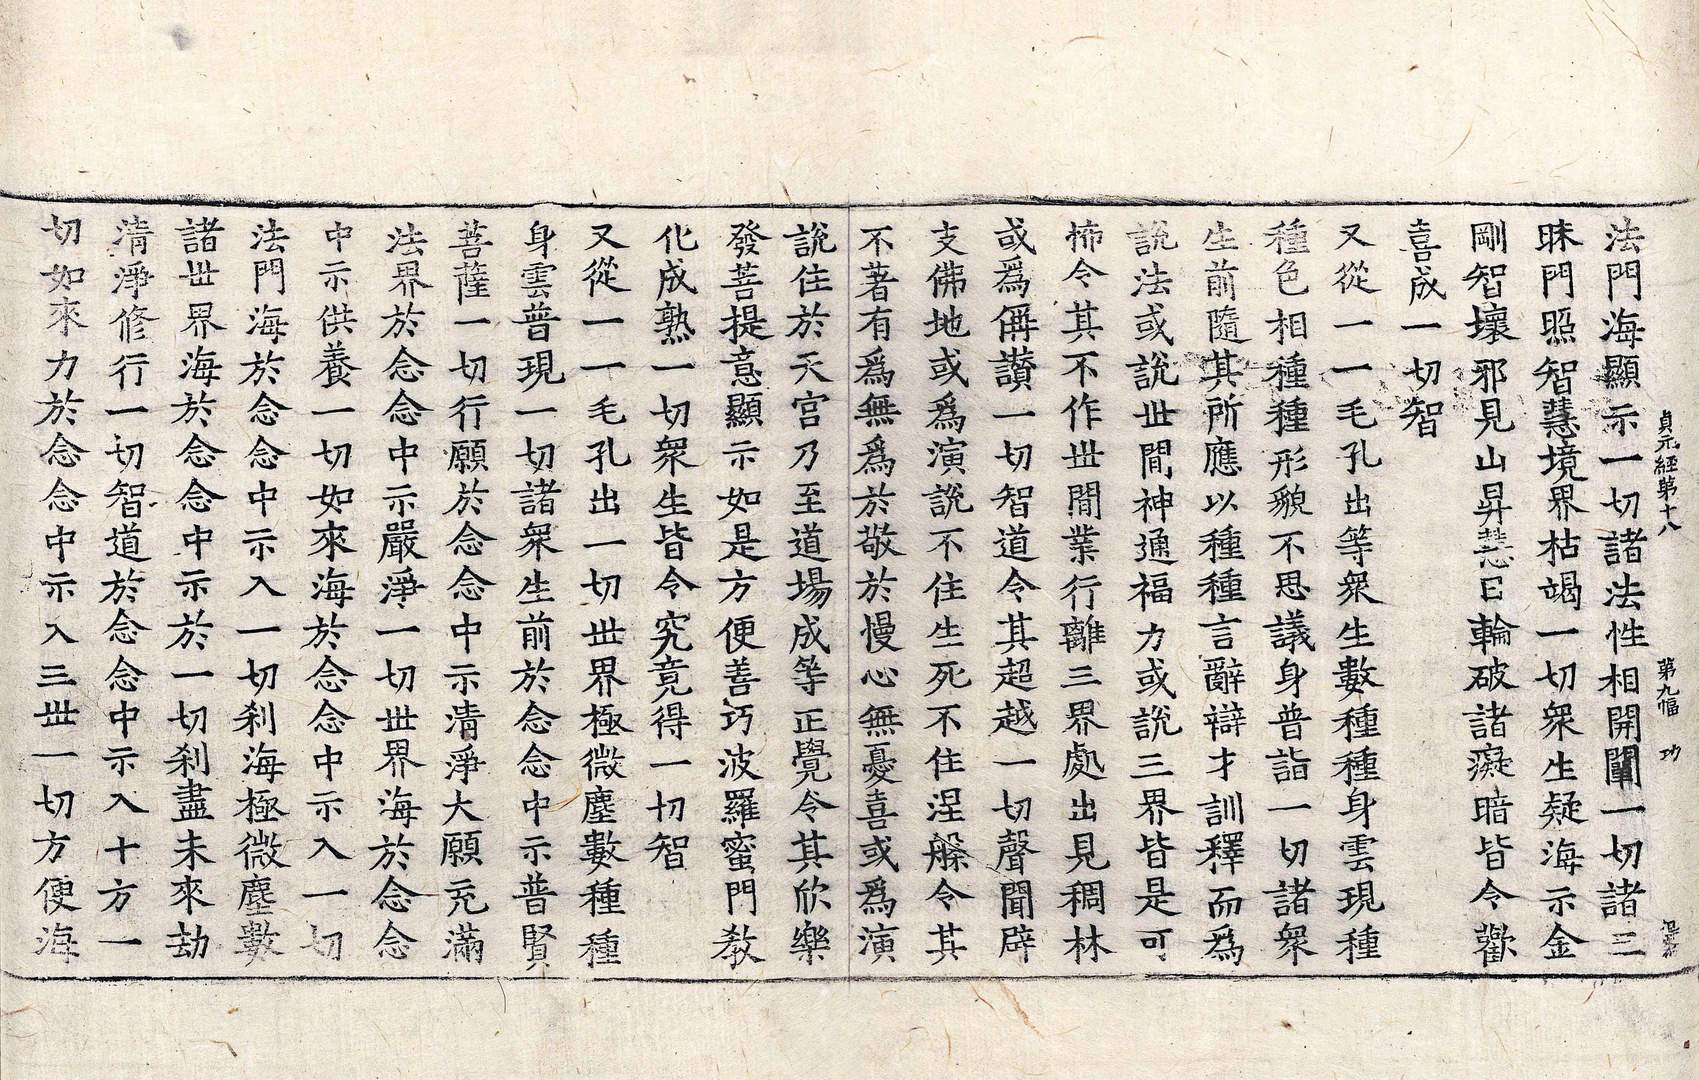 貞元經第十八 第九幅 功
法門海顯示一切諸法性相開闡一切諸三
昧門照智慧境界枯竭一切衆生疑海示金
剛智壞邪見山昇慧日輪破諸癡暗皆令歡
喜成一切智
又從一一毛孔出等衆生數種種身雲現種
種色相種種形貌不思議身普詣一切諸衆
生前隨其所應以種種言辭辯才訓釋而爲
說法或說世間神通福力或說三界皆是可
怖令其不作世間業行離三界處出見稠林
或爲偁讚一切智道令其超越一切聲聞辟
支佛地或爲演說不住生死不住涅槃令其
不著有爲無爲於敬於慢心無憂喜或爲演
說住於天宮乃至道場成等正覺令其欣樂
發菩提意顯示如是方便善巧波羅蜜門教
化成熟一切衆生皆令究竟得一切智
又從一一毛孔出一切世界極微塵數種種
身雲普現一切諸衆生前於念念中示普賢
菩薩一切行願於念念中示清淨大願充滿
法界於念念中示嚴淨一切世界海於念念
中示供養一切如來海於念念中示入一切
法門海於念念中示入一切刹海極微塵數
諸世界海於念念中示於一切刹盡未來劫
清淨修行一切智道於念念中示入十方一
切如來力於念念中示入三世一切方便海